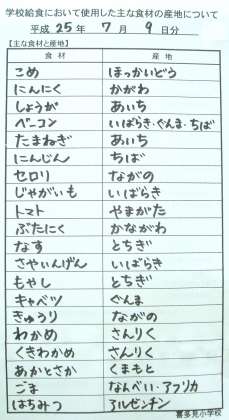 学校給食において使用した主な食材の産地について
平成 25 年 7 月 9 日分
【主な食材と産地】
食材 産地
こめ ほっかいどう
にんにく かがわ
しょうが あいち
ベーコン いばらき・ぐんま・ちば
たまねぎ あいち
にんじん ちば
セロリ ながの
じゃがいも いばらき
トマト やまがた
ぶたにく かながわ
なす とちぎ
さやいんげん いばらき
もやし とちぎ
キャベツ ぐんま
きゅうり ながの
わかめ さんりく
くきわかめ さんりく
あかとさか くまもと
ごま なんべい・アフリカ
はちみつ アルゼンチン
喜多見小学校